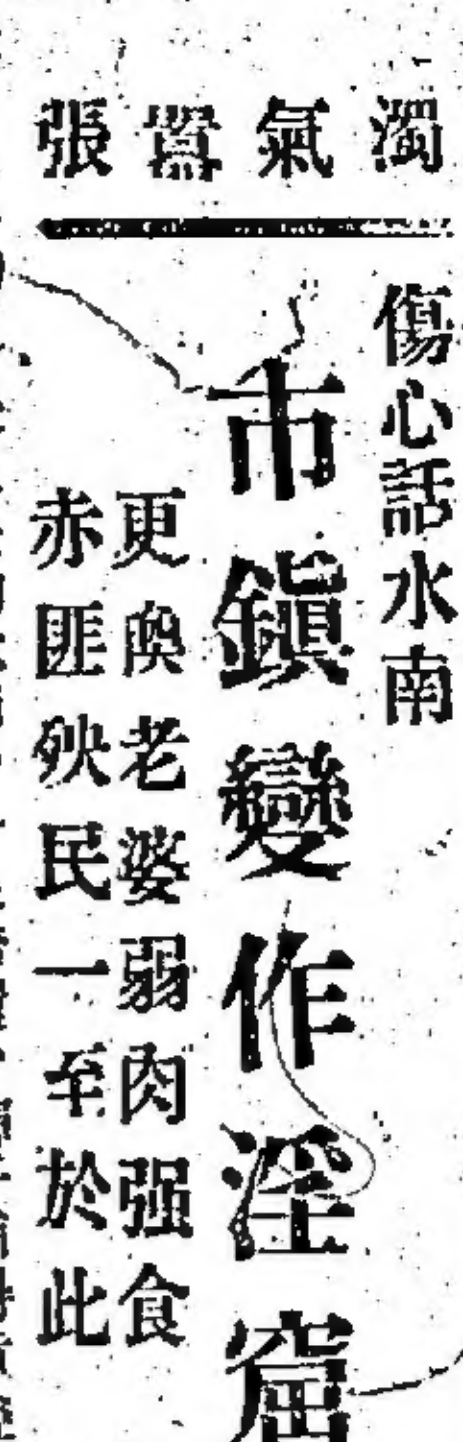 濁氣囂張
傷心話水南
市鎮變作淫窟
更換老婆弱肉强食
赤匪殃民一至於此